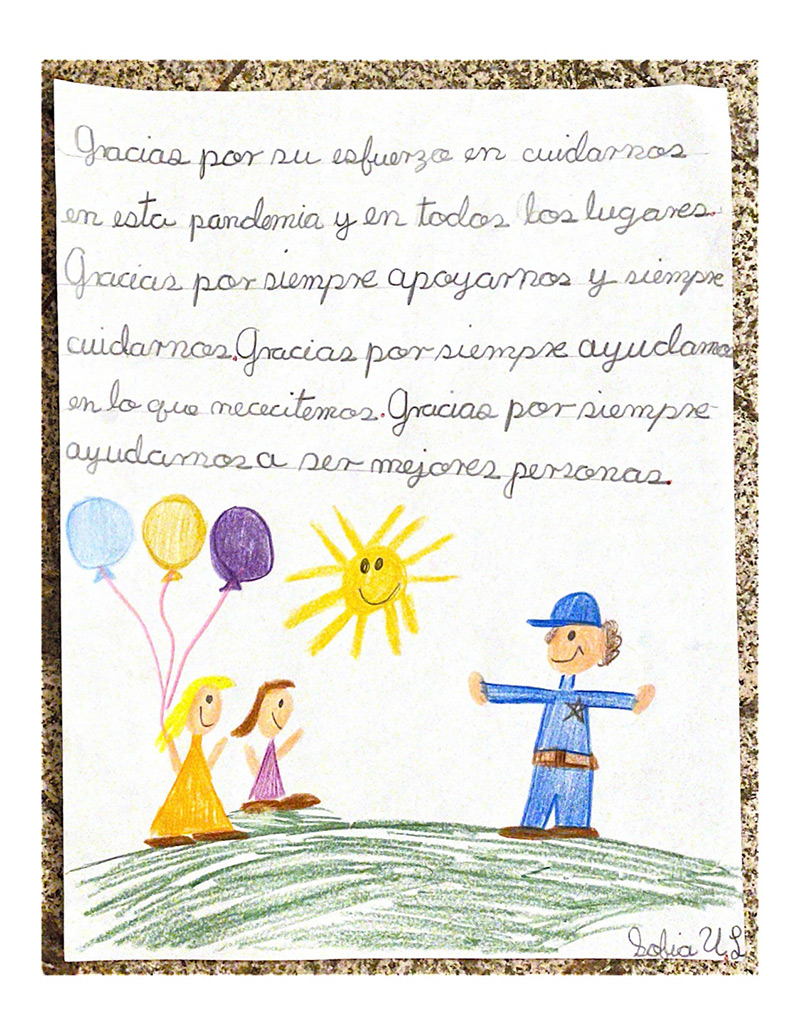 Gracias por su esfuerzo en cuidarnos
en esta pandemia y en todos los lugares.
Gracias por siempre apoyarnos y siempre
cuidarnos. Gracias por siempre ayudarnos
en lo que nececitemos. Gracias por siempre
ayudarnos a ser mejores personas.
Sofia U.L